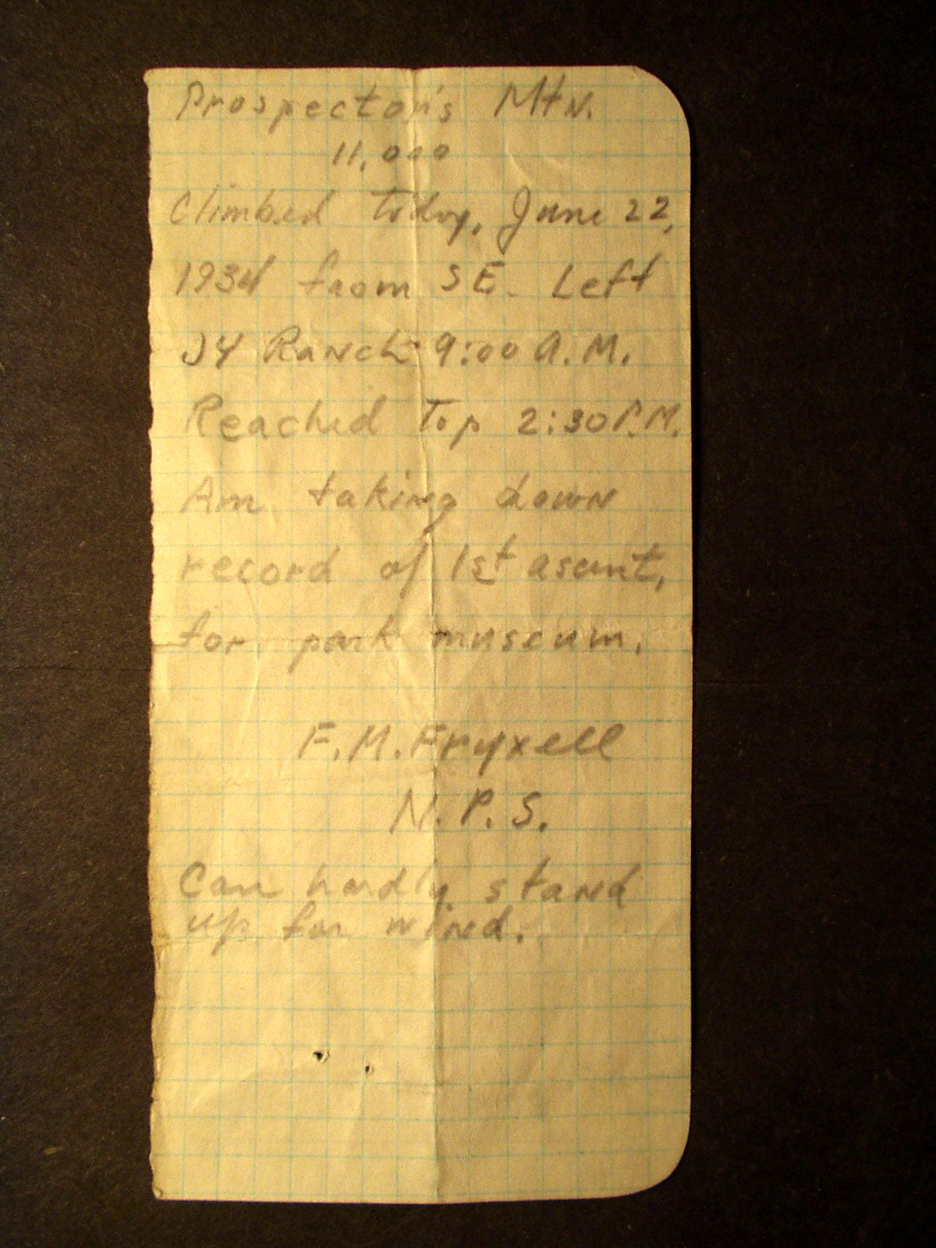 Prospector's Mtn.
11,000
Climbed today, June 22,
1934 from SE. Left
JY Ranch 9:00 A.M.
Reached Top 2:30 P.M.
Am taking down
record of 1st asent,
for park museum.
F.M. Fryxell
N.P.S.
Can hardly stand
up for wind.